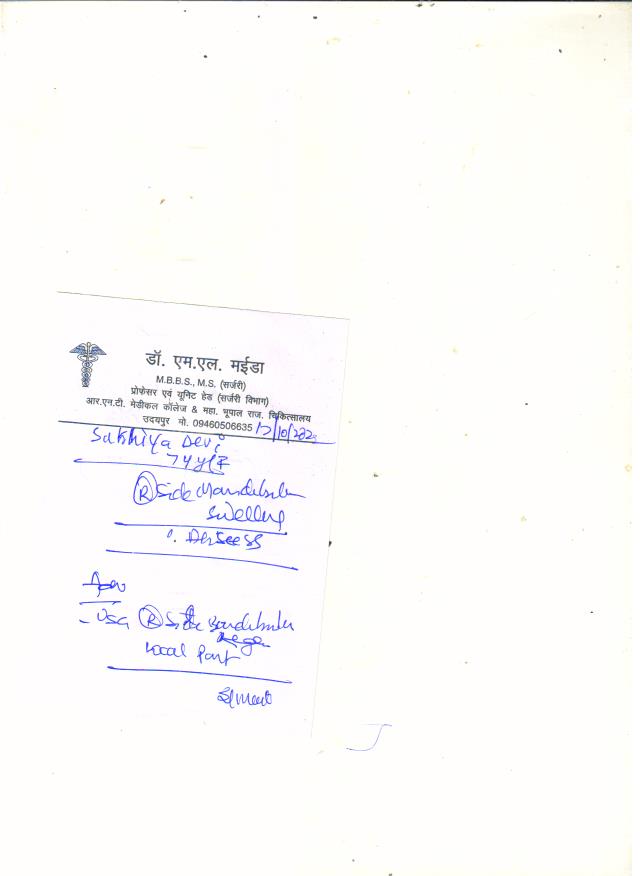 डॉ. एम.एल. मईडा
M.B.B.S., M.S. (सर्जरी)
प्रोफेसर एवं यूनिट हेड (सर्जरी विभाग)
आर.एन.टी. मेडीकल कॉलेज & महा. भूपाल राज. चिकित्सालय
उदयपुर मो. 09460506635
Sakhiya Devi
74y/F
R Side Mandibular
Swelling
Advice
- USG R Side Mandibular
Region
Local Part